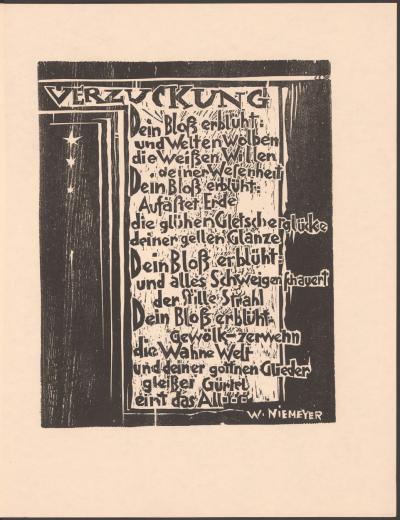 VERZUCKUNG
Dein Bloß erblüht:
und Welten wölben
die Weißen Willen
deiner Wesenheit
Dein Bloß erblüht:
Aufästet Erde
die glühen Gletscherglücke
deiner gellen Glänze
Dein Bloß erblüht:
und alles Schweigen schauert
der Stille Strahl
Dein Bloß erblüht:
Gewölk-zerwehn
die Wahne Welt
und deiner gottnen Glieder
gleißer Gürtel
eint das All
W. NIEMEYER